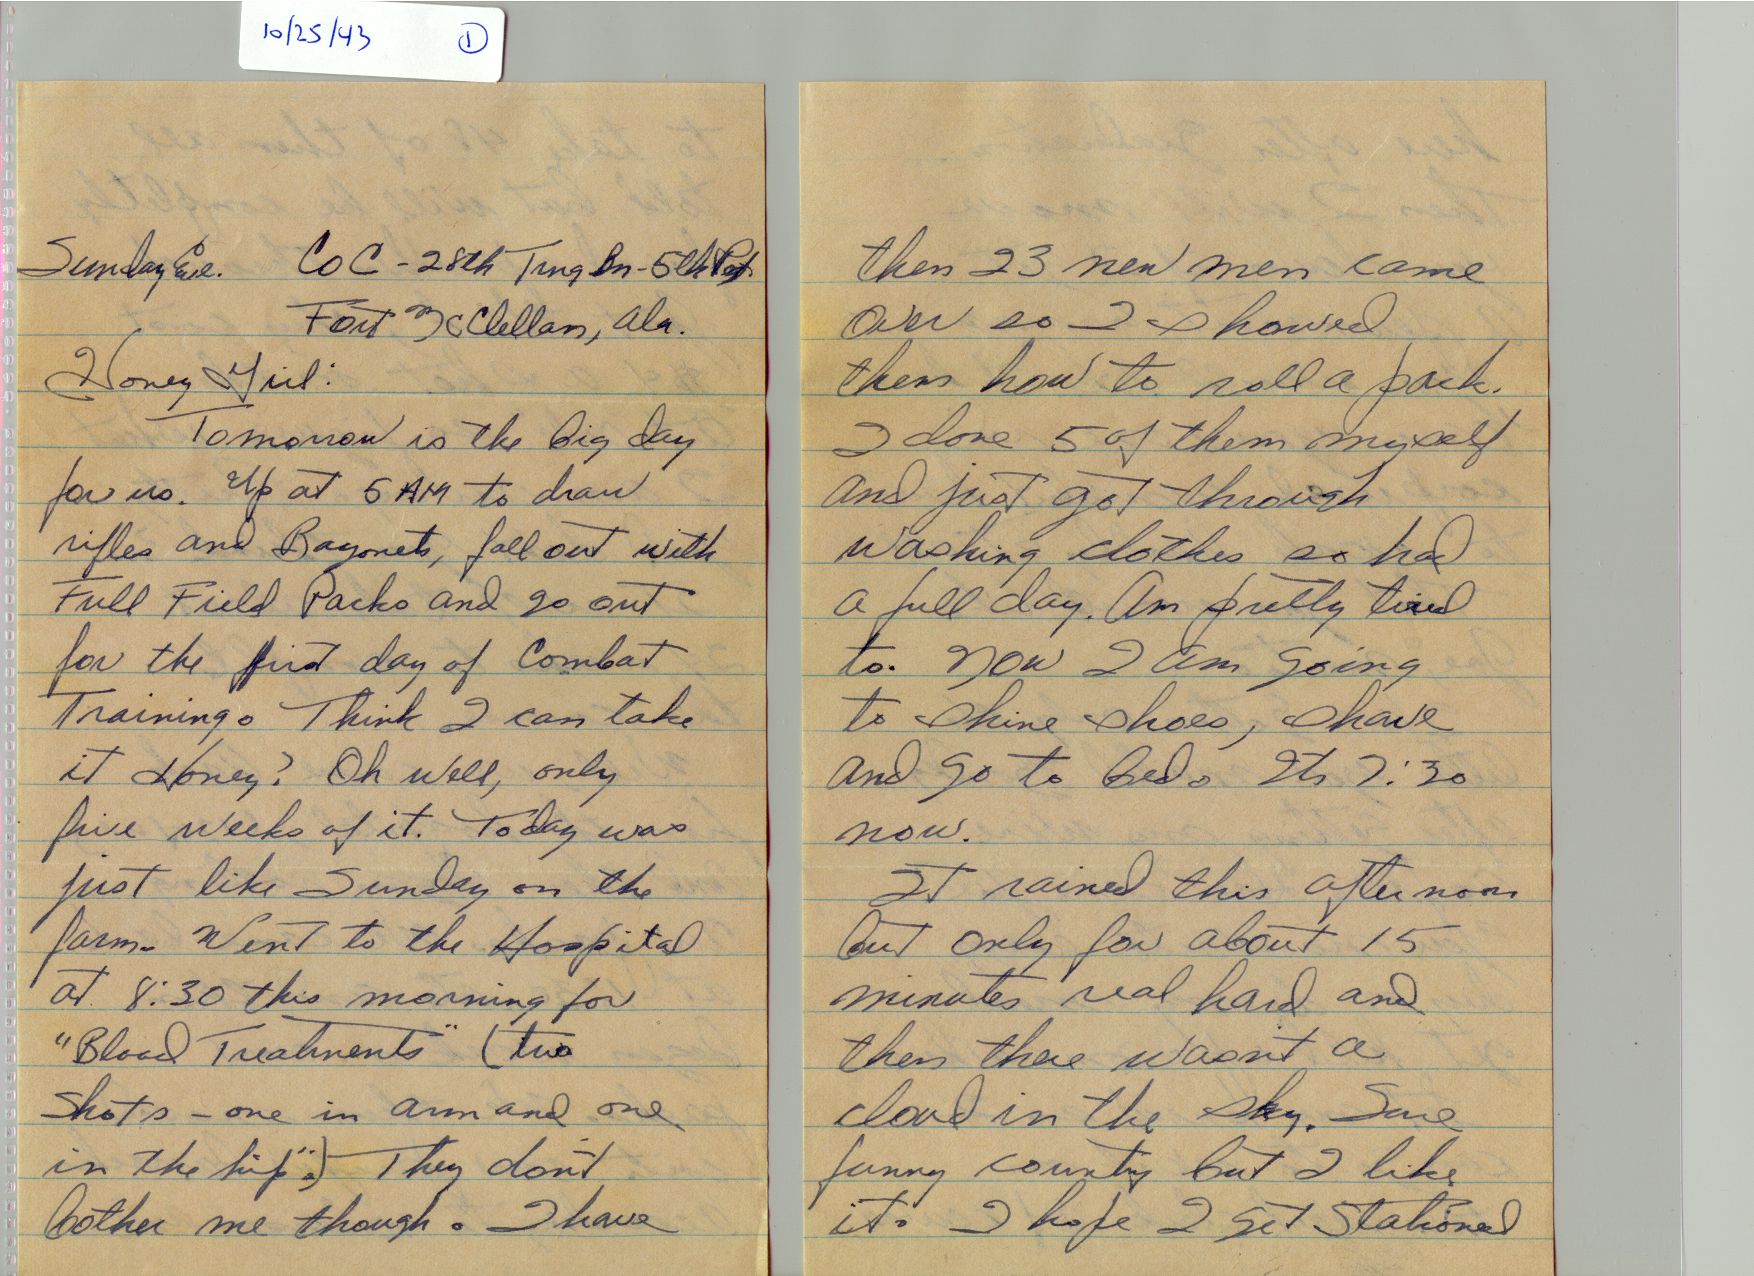 10/25/43 ①
Sunday Eve. Co C - 28th Trng Bn - 5th Regt.
Fort McClellan, Ala.
Honey Girl:
Tomorrow is the big day
for us. Up at 5 AM to draw
rifles and Bayonets, fall out with
Full Field Packs and go out
for the first day of Combat
Training. Think I can take
it Honey? Oh well, only
five weeks of it. Today was
just like Sunday on the
farm. Went to the Hospital
at 8:30 this morning for
"Blood Treatments" (two
shots - one in arm and one
in the hip".) They don't
bother me though. I have
then 23 new men came
over so I showed
them how to roll a pack.
I done 5 of them myself
and just got through
washing clothes so had
a full day. Am pretty tired
to. Now I am going
to shine shoes, shave
and go to bed. Its 7:30
now.
It rained this afternoon
but only for about 15
minutes real hard and
then there wasn't a
cloud in the sky. Sure
funny country but I like
it. I hope I get stationed